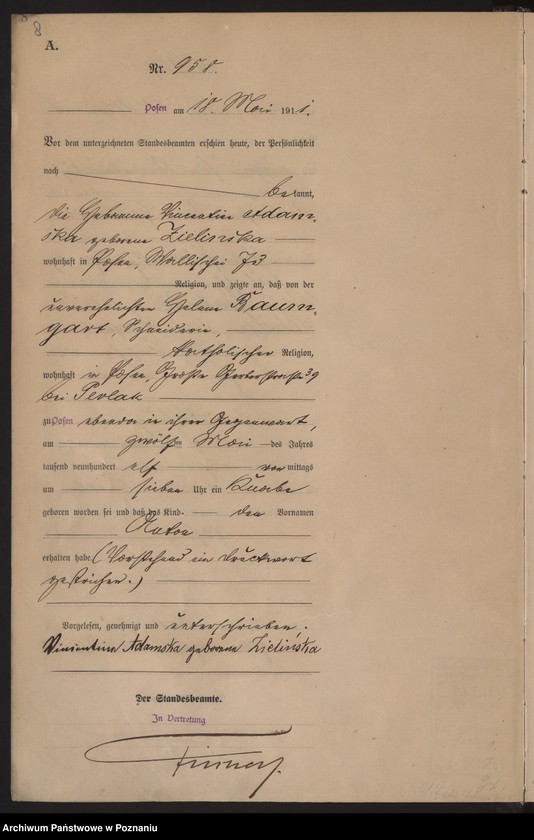 8
A.
Nr. 958.
Posen am 18. Mai 1911.
Vor dem unterzeichneten Standesbeamten erschien heute, der Persönlichkeit
nach bekannt,
die Hebamme Vincentine Adam-
ska geborene Zielińska
wohnhaft in Posen, Wallischei
Religion, und zeigte an, daß von der
unverehelichten Helene Baum-
gart, Schneiderin,
katholischer Religion,
wohnhaft in Posen, Große Gerberstraße 39
bei
zu Posen ebenda in ihrer Gegenwart,
am zwölften Mai des Jahres
tausend neunhundert elf vormittags
um sieben Uhr ein Knabe
geboren worden sei und daß das Kind den Vornamen
Anton
erhalten habe. (Vorstehend ein Druckwort
gestrichen.)
Vorgelesen, genehmigt und unterschrieben.
Vincentine Adamska geborene Zielińska
Der Standesbeamte.
In Vertretung
Archiwum Państwowe w Poznaniu